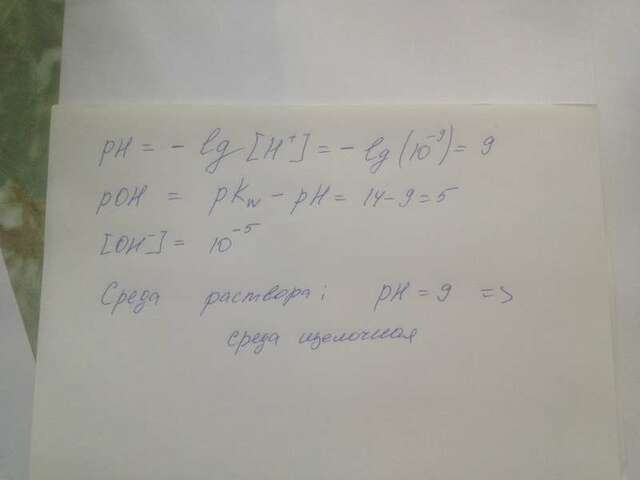 pH = - lg [H⁺] = - lg (10⁻⁹) = 9
pOH = pKw - pH = 14-9=5
[OH⁻] = 10⁻⁵
Среда раствора: pH = 9 =>
среда щелочная